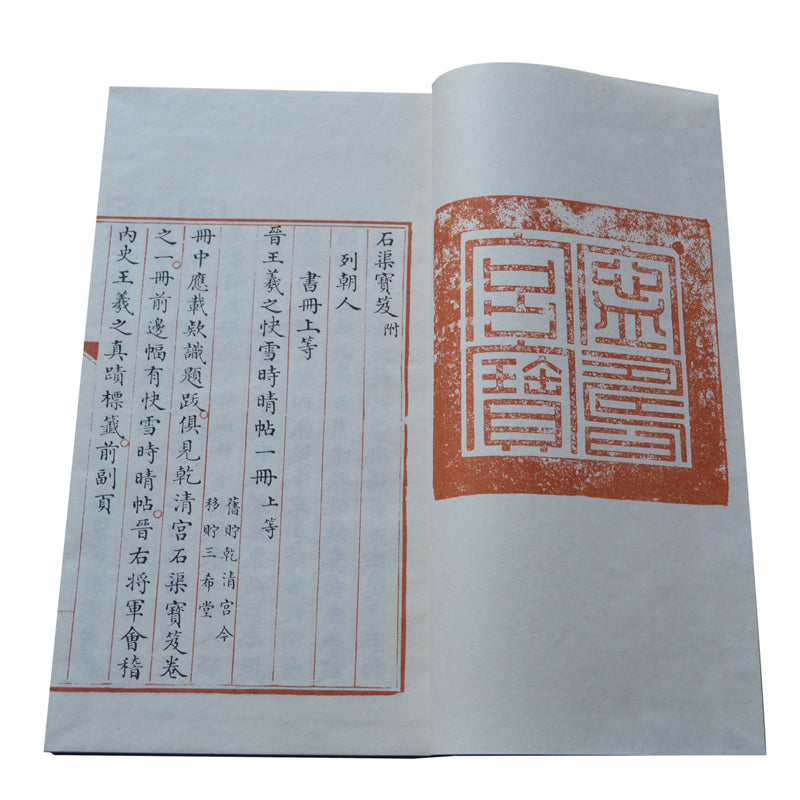 石渠寶笈 附
列朝人
書冊上等
晉王羲之快雪時晴帖一冊 上等
舊貯乾清宮今
移貯三希堂
冊中應載欵識題跋。俱見乾清宮石渠寶笈卷
之一。冊前邊幅有快雪時晴帖。晉右將軍會稽
內史王羲之真蹟標籤。前副頁